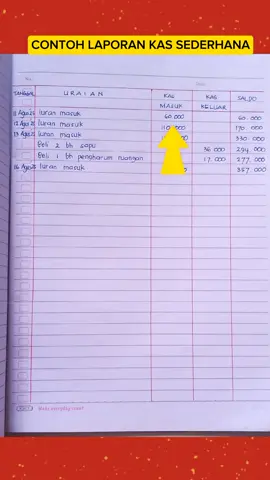 CONTOH LAPORAN KAS SEDERHANA
TANGGAL URAIAN KAS MASUK KAS KELUAR SALDO
11 Agus Iuran masuk 60.000 60.000
12 Agus Iuran masuk 110.000 170.000
13 Agus Iuran masuk 330.000
Beli 2 bh sapu 36.000 294.000
Beli 1 bh pengharum ruangan 17.000 277.000
14 Agus Iuran masuk 357.000